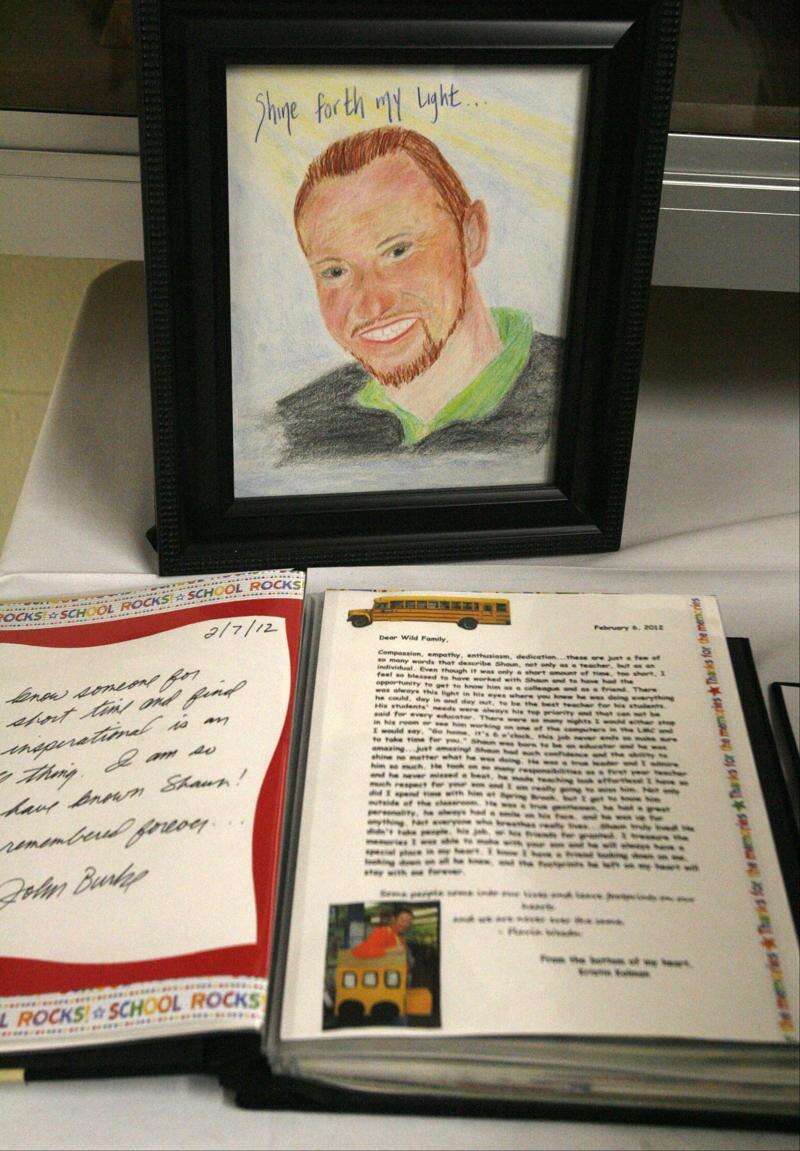 Shine forth my Light...
OCKS!☆SCHOOL ROCKS!☆SCHOOL ROCKS!
2/7/12
know someone for
short time and find
inspirational is an
thing. I am so
have known Shaun!
remembered forever...
John Burke
L ROCKS!☆SCHOOL ROCKS!
February 6, 2012
Dear Wild Family,
Compassion, empathy, enthusiasm, dedication...these are just a few of
so many words that describe Shaun, not only as a teacher, but as an
individual. Even though it was only a short amount of time, too short, I
feel so blessed to have worked with Shaun and to have had the
opportunity to get to know him as a colleague and as a friend. There
was always this light in his eyes where you knew he was doing everything
he could, day in and day out, to be the best teacher for his students.
His students' needs were always his top priority and that can not be
said for every educator. There were so many nights I would either stop
in his room or see him working on one of the computers in the LMC and
I would say, "Go home, it's 6 o'clock, this job needs to make sure
to take time for you." Shaun was born to be an educator and he was
amazing...just amazing! Shaun had such confidence and the ability to
shine no matter what he was doing. He was a true leader and I admire
him so much. He took on so many responsibilities as a first year teacher
and he never missed a beat, he made teaching look effortless! I have so
much respect for your son and I am really going to miss him. Not only
did I spend time with him at Spring Brook, but I got to know him
outside of the classroom. He was a true gentleman, he had a great
personality, he always had a smile on his face, and he was up for
anything. Not everyone who breathes really lives...Shaun truly lived! He
didn't take people, his job, or his friends for granted. I treasure the
memories I was able to make with your son and he will always have a
special place in my heart. I know I have a friend looking down on me,
looking down on all he knew, and the footprints he left on my heart will
stay with me forever.
Some people come into our lives and leave footprints on our
hearts
and we are never ever the same.
From the bottom of my heart,
Thanks for the memories ★ Thanks for the memories ★ Thanks for the memories ★ Thanks for the memories